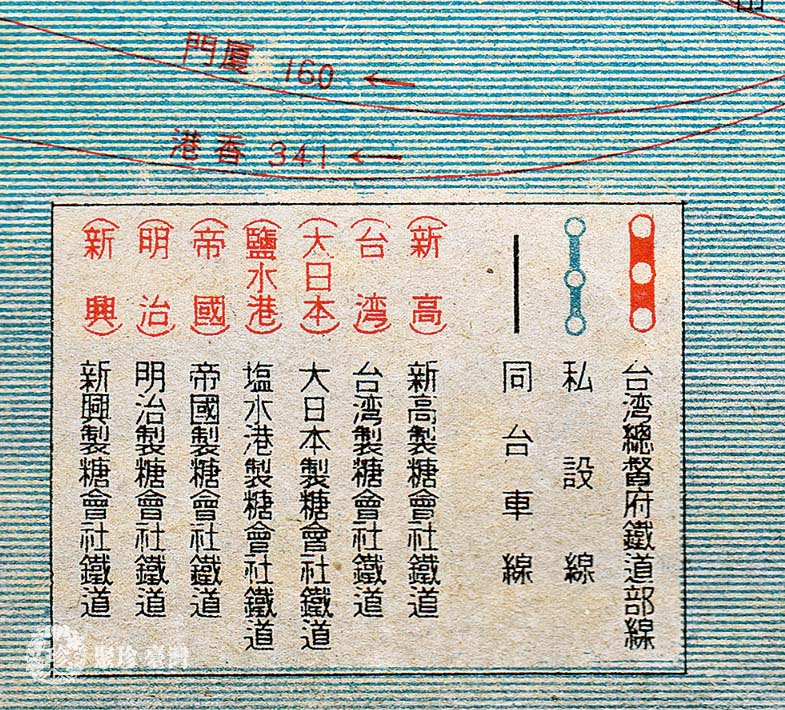 門厦 160
港香 341
台湾總督府鐵道部線
私設線
同台車線
(新高) 新高製糖會社鐵道
(台湾) 台湾製糖會社鐵道
(大日本) 大日本製糖會社鐵道
(鹽水港) 塩水港製糖會社鐵道
(帝國) 帝國製糖會社鐵道
(明治) 明治製糖會社鐵道
(新興) 新興製糖會社鐵道
聚珍臺灣